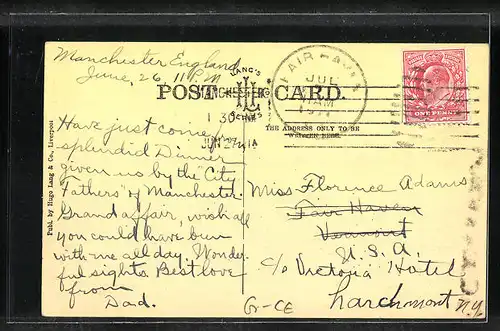 Manchester England
June, 26, 11 P.M.
LANG'S
POST CARD.
MANCHESTER
FAIR HAVEN
JUL
AM
1911
130
JUN 27
ONE PENNY
THE ADDRESS ONLY TO BE
WRITTEN HERE.
Publ. by Hugo Lang & Co., Liverpool
Have just come
splendid Dinner
given us by the City
Fathers of Manchester.
Grand affair, wish all
you could have been
with me all day. Wonder
ful sights. Best love
from
Dad.
Miss Florence Adams
Fair Haven
Vermont
U.S.A.
c/o Victoria Hotel
Larchmont N.Y.
Gr-CE